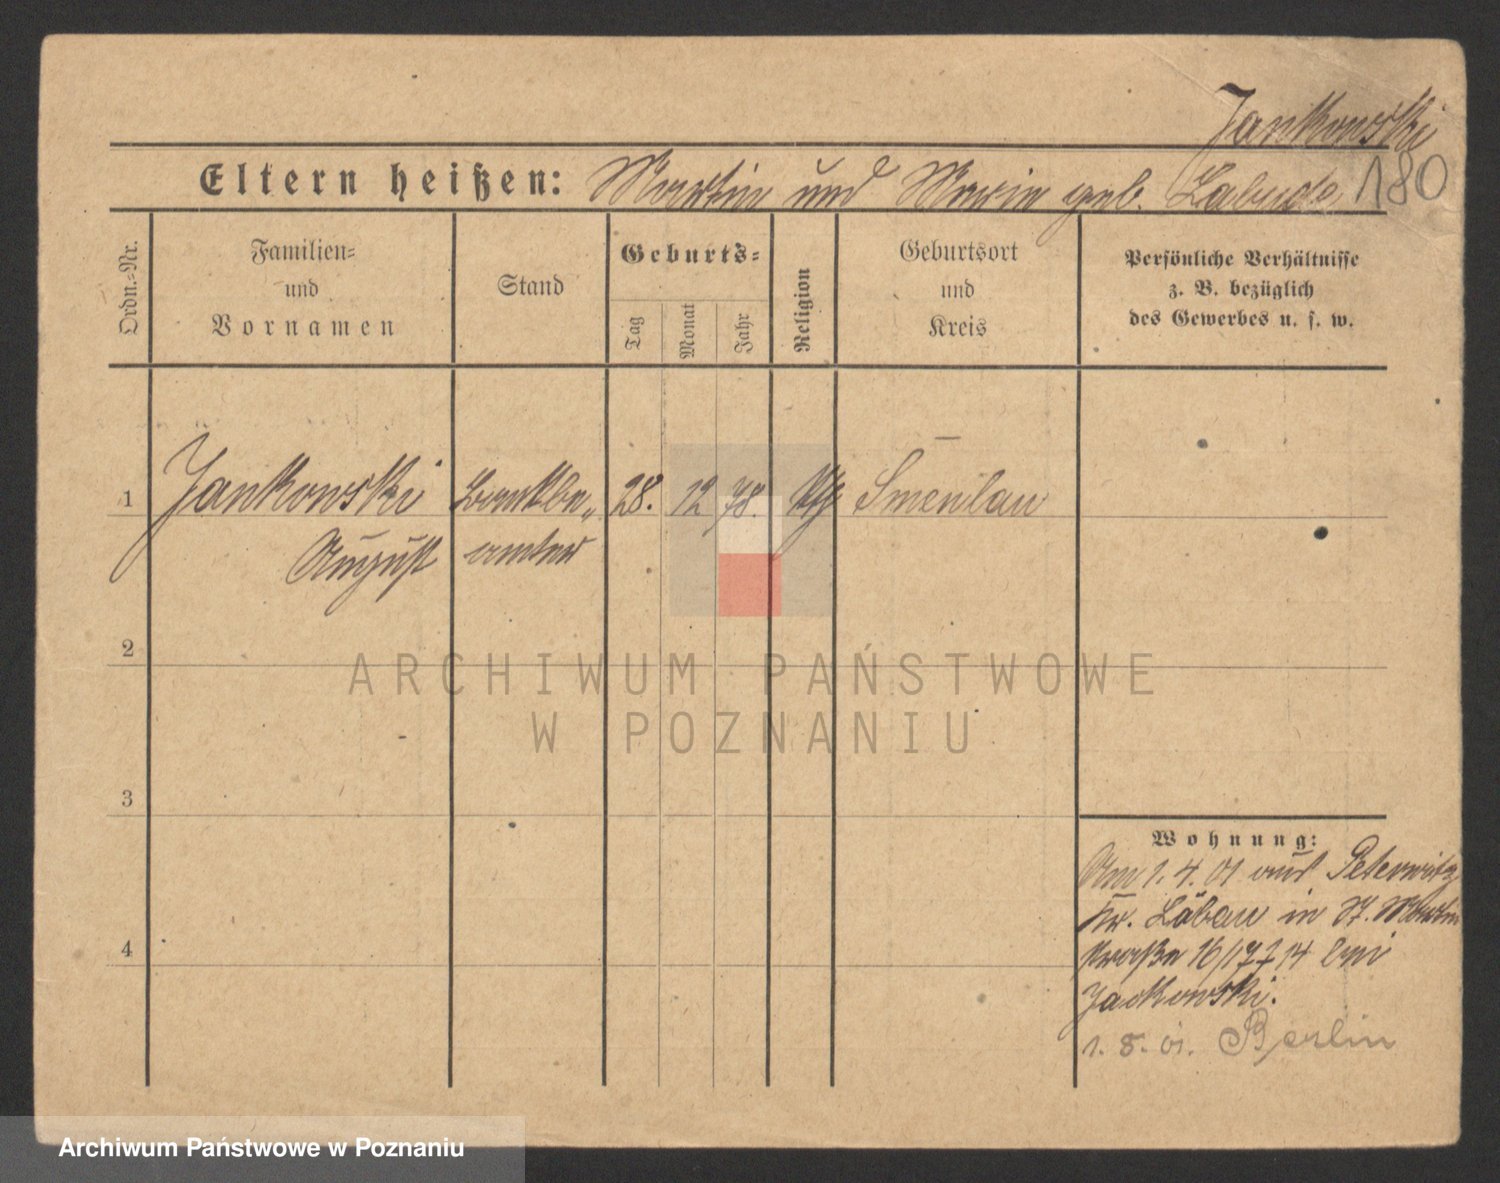 Jankowski
180
Eltern heißen: Martin und Marie geb. Labuda
Ordn.-Nr.
Familien-
und
Vornamen
Stand
Geburts-
Tag
Monat
Jahr
Religion
Geburtsort
und
Kreis
Persönliche Verhältnisse
z. B. bezüglich
des Gewerbes u. s. w.
1
Jankowski
August
Bankbe„
amter
28. 12 78.
Smenlau
2
3
4
Wohnung:
Am 1. 4. 01 aus Peterwitz
Kr. Löbau in St. Martin
straße 16/17 14 bei
Jackowski.
1. 8. 01. Berlin
ARCHIWUM PAŃSTWOWE
W POZNANIU
Archiwum Państwowe w Poznaniu